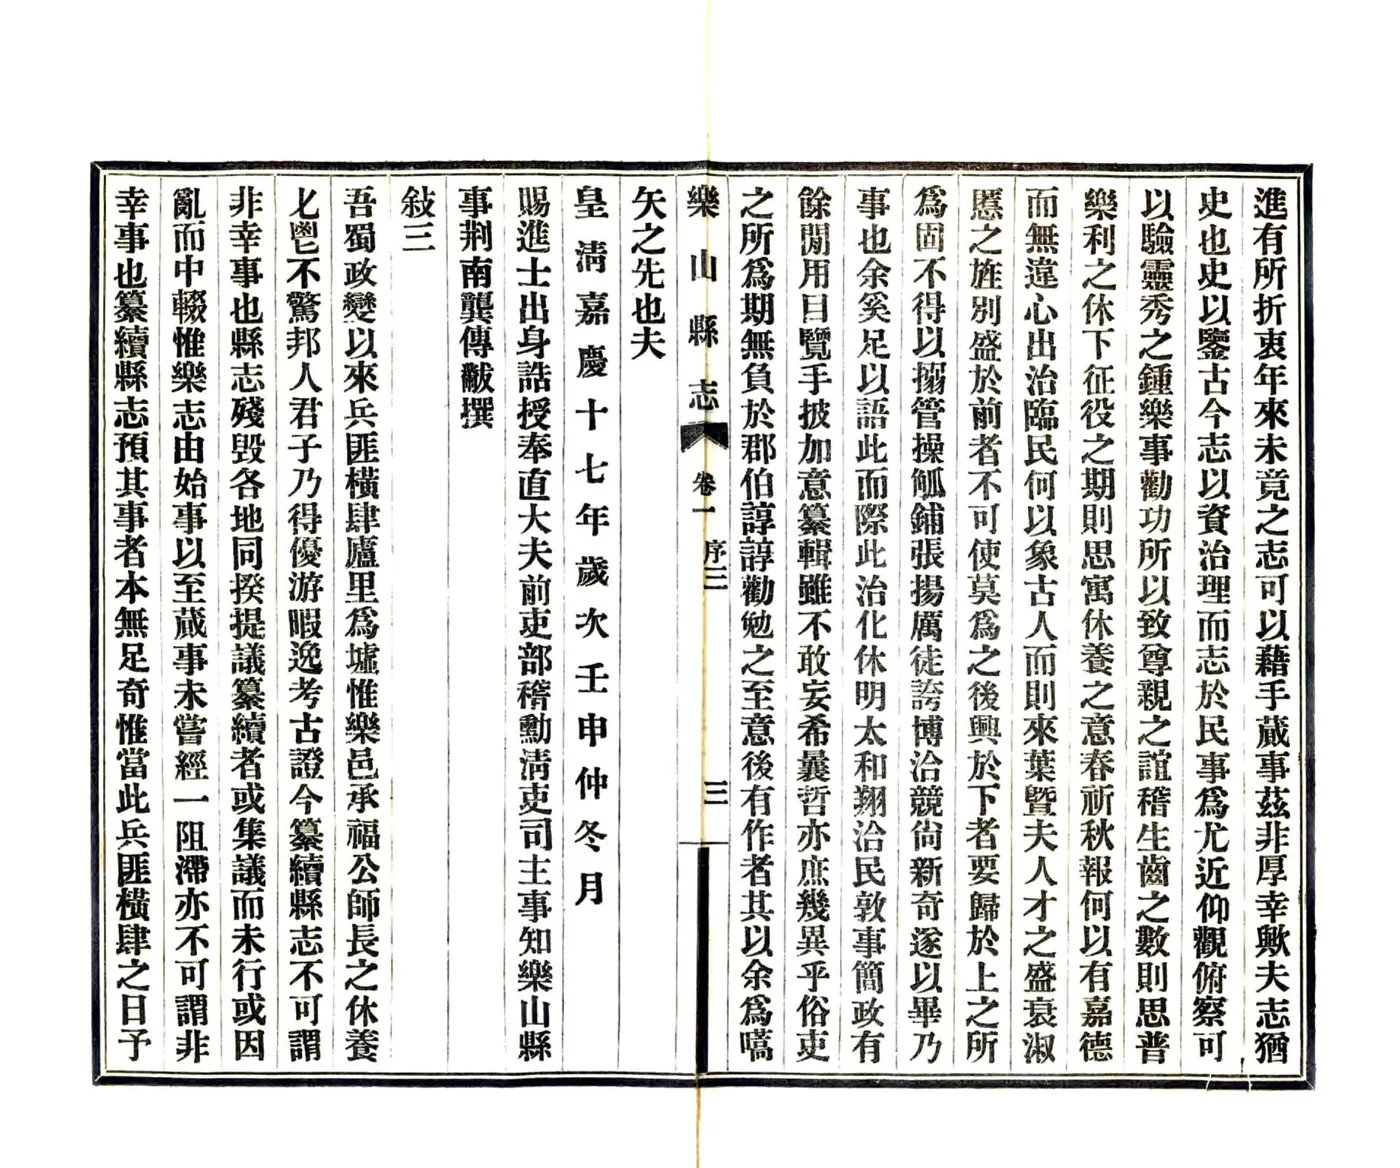 進有所折衷年來未竟之志可以藉手蕆事茲非厚幸歟夫志猶
史也史以鑒古今志以資治理而志於民事爲尤近仰觀俯察可
以驗靈秀之鍾樂事勸功所以致尊親之誼稽生齒之數則思普
樂利之休下征役之期則思寓休養之意春祈秋報何以有嘉德
而無違心出治臨民何以象古人而則來葉曁夫人才之盛衰淑
慝之旌別盛於前者不可使莫爲之後興於下者要歸於上之所
爲固不得以搦管操觚鋪張揚厲徒誇博洽競尙新奇遂以畢乃
事也余奚足以語此而際此治化休明太和翔洽民敦事簡政有
餘閒用目覽手披加意纂輯雖不敢妄希曩哲亦庶幾異乎俗吏
之所爲期無負於郡伯諄諄勸勉之至意後有作者其以余爲嚆
樂山縣志 卷一 序三 三
矢之先也夫
皇淸嘉慶十七年歲次壬申仲冬月
賜進士出身誥授奉直大夫前吏部稽勳淸吏司主事知樂山縣
事荆南龔傳黻撰
敍三
吾蜀政變以來兵匪橫肆廬里爲墟惟樂邑承福公師長之休養
匕鬯不驚邦人君子乃得優游暇逸考古證今纂續縣志不可謂
非幸事也縣志殘毀各地同揆提議纂續者或集議而未行或因
亂而中輟惟樂志由始事以至蕆事未嘗經一阻滯亦不可謂非
幸事也纂續縣志預其事者本無足奇惟當此兵匪橫肆之日予